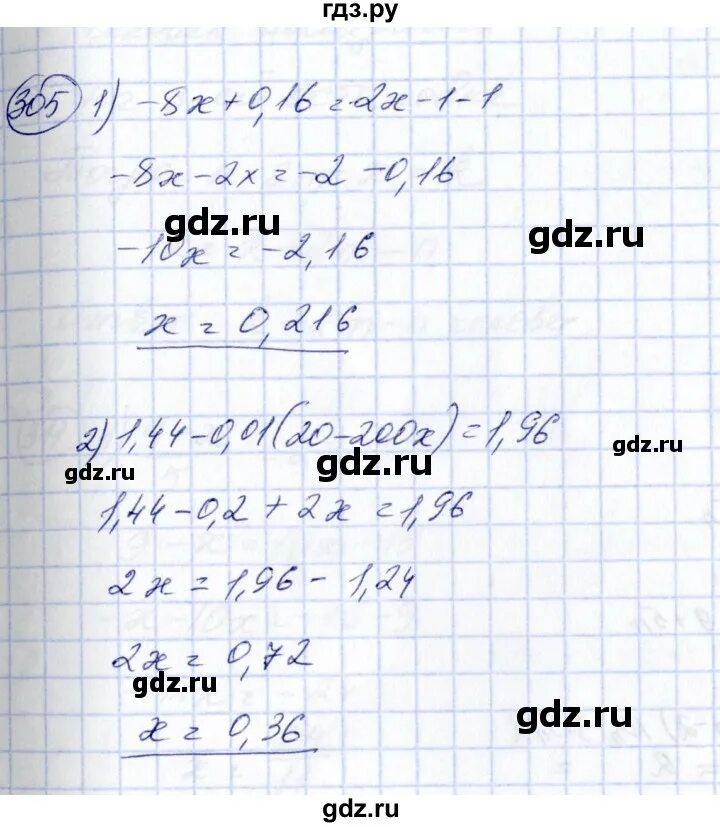 гдз.ру
305 1) -8x+0,16=2x-1-1
-8x-2x=-2-0,16
gdz.ru
gdz.ru
-10x=-2,16
x=0,216
2) 1,44-0,01(20-200x)=1,96
gdz.ru
gdz.ru
gdz.ru
1,44-0,2+2x=1,96
2x=1,96-1,24
2x=0,72
gdz.ru
gdz.ru
x=0,36
gdz.ru